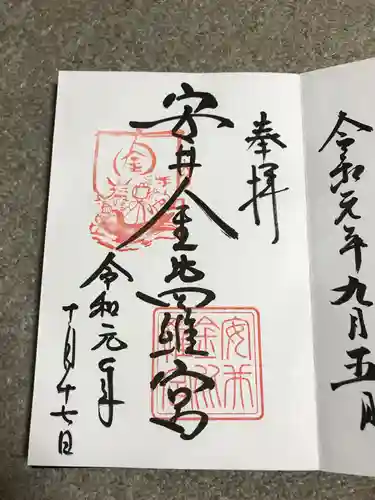 令和元年九月五日
奉拝
安井金比羅宮
安井
金比
羅宮
金
令和元年
十月十七日